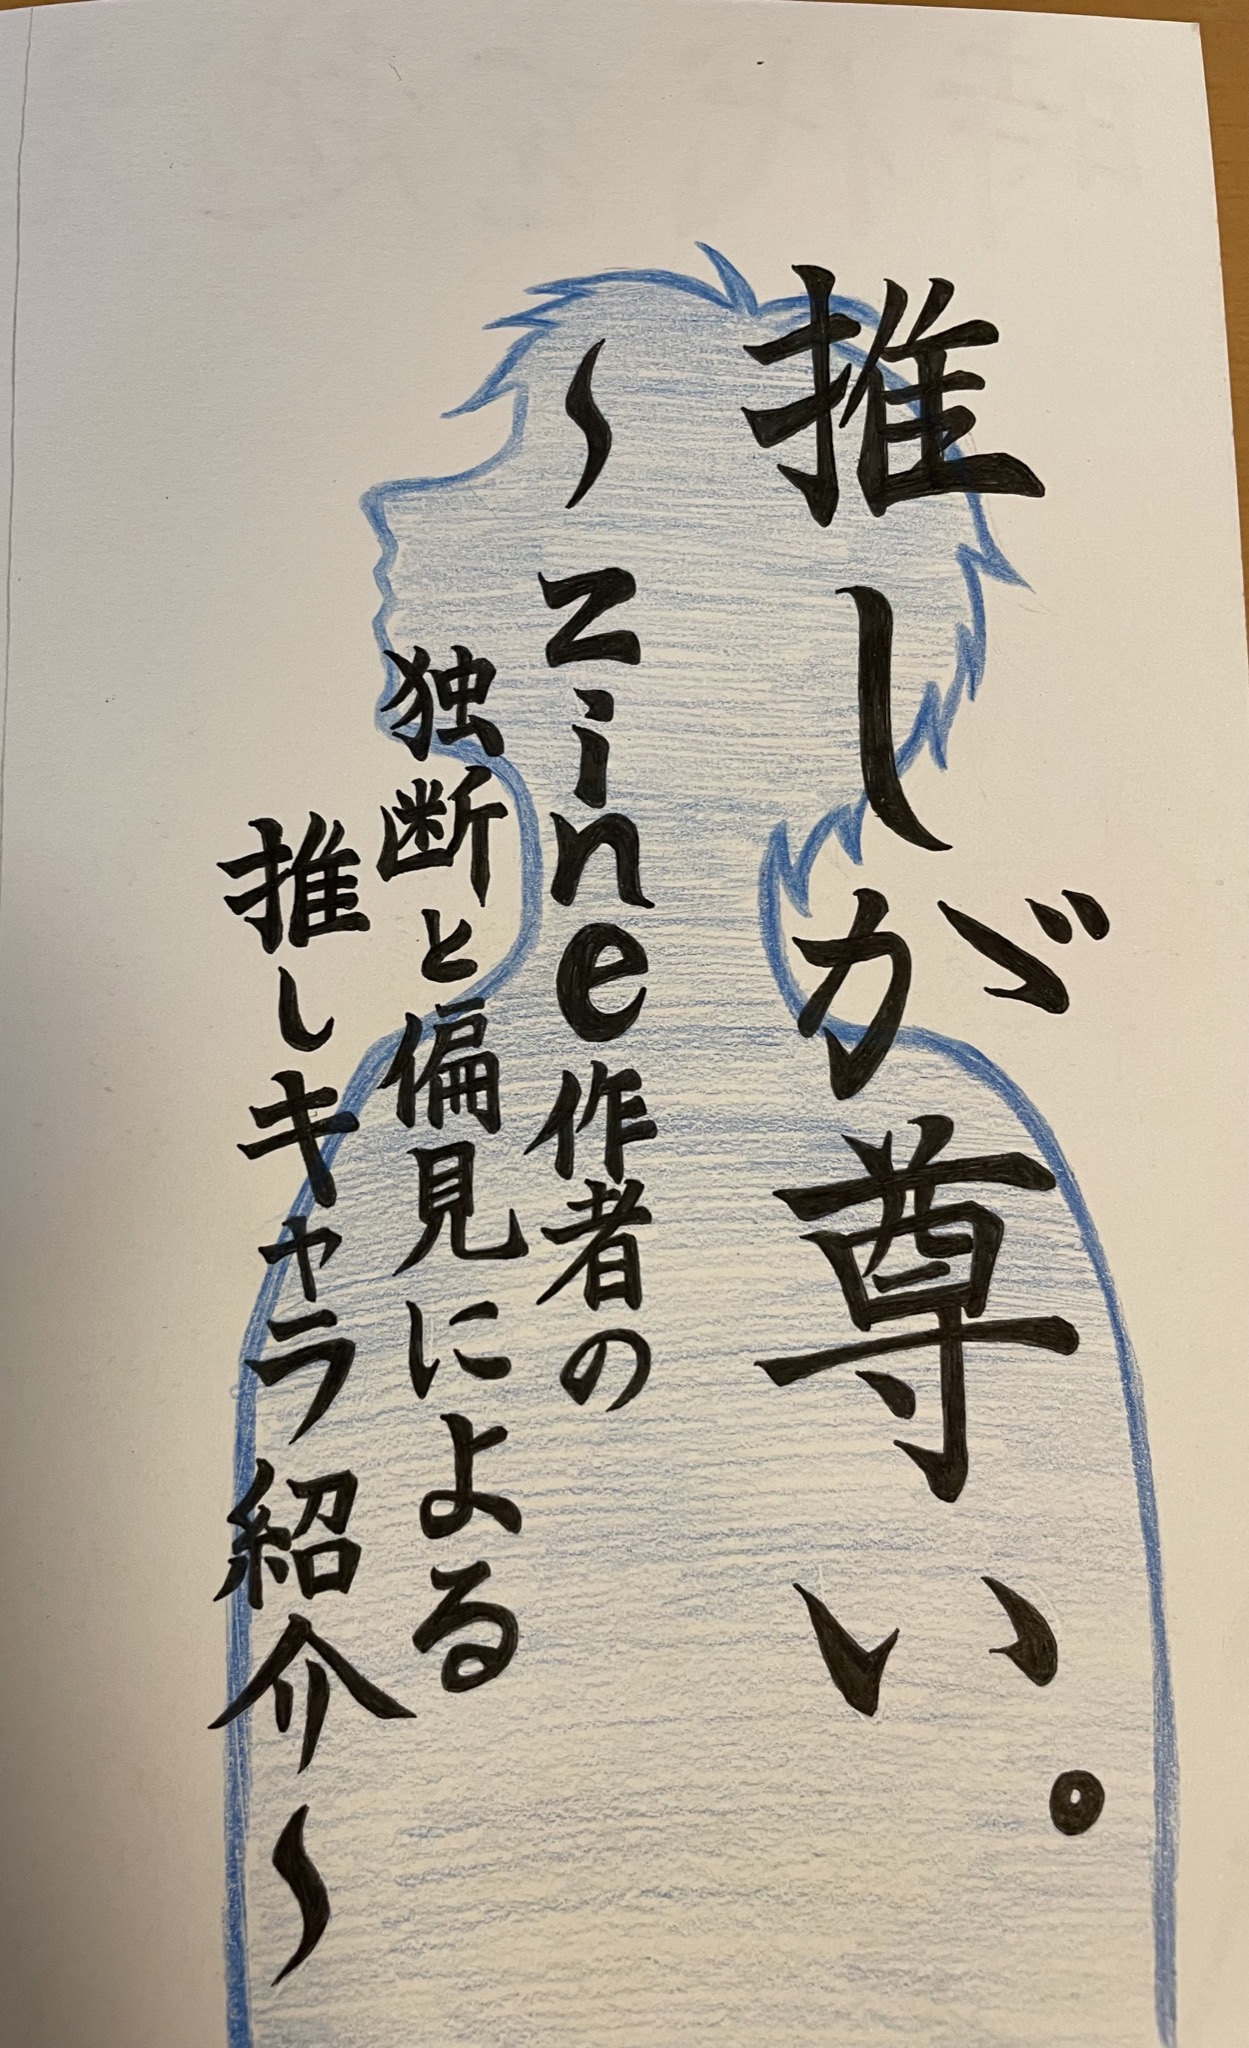 推しが尊い。
〜zine作者の
独断と偏見による
推しキャラ紹介〜